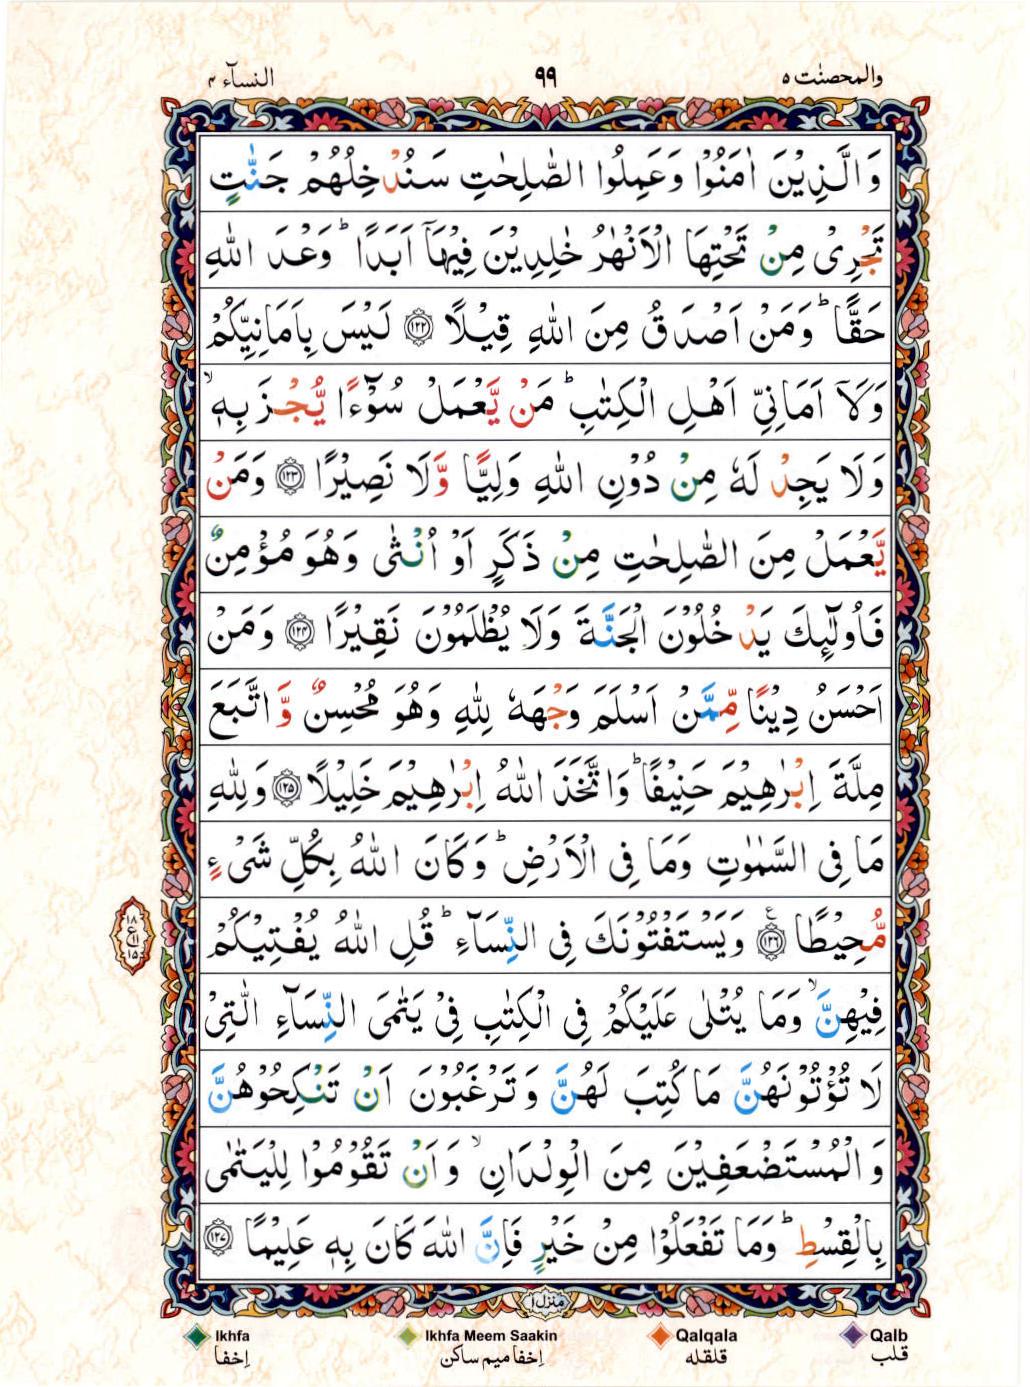 النسآء ۴ ۹۹ والمحصنٰت ۵
وَالَّذِيْنَ اٰمَنُوْا وَعَمِلُوا الصّٰلِحٰتِ سَنُدْخِلُهُمْ جَنّٰتٍ
تَجْرِىْ مِنْ تَحْتِهَا الْاَنْهٰرُ خٰلِدِيْنَ فِيْهَآ اَبَدًا ؕ وَعْدَ اللّٰهِ
حَقًّا ؕ وَمَنْ اَصْدَقُ مِنَ اللّٰهِ قِيْلًا ۝۱۲۲ لَيْسَ بِاَمَانِيِّكُمْ
وَلَآ اَمَانِىِّ اَهْلِ الْكِتٰبِ ؕ مَنْ يَّعْمَلْ سُوْٓءًا يُّجْزَ بِهٖ ۙ
وَلَا يَجِدْ لَهٗ مِنْ دُوْنِ اللّٰهِ وَلِيًّا وَّلَا نَصِيْرًا ۝۱۲۳ وَمَنْ
يَّعْمَلْ مِنَ الصّٰلِحٰتِ مِنْ ذَكَرٍ اَوْ اُنْثٰى وَهُوَ مُؤْمِنٌ
فَاُولٰٓئِكَ يَدْخُلُوْنَ الْجَنَّةَ وَلَا يُظْلَمُوْنَ نَقِيْرًا ۝۱۲۴ وَمَنْ
اَحْسَنُ دِيْنًا مِّمَّنْ اَسْلَمَ وَجْهَهٗ لِلّٰهِ وَهُوَ مُحْسِنٌ وَّاتَّبَعَ
مِلَّةَ اِبْرٰهِيْمَ حَنِيْفًا ؕ وَاتَّخَذَ اللّٰهُ اِبْرٰهِيْمَ خَلِيْلًا ۝۱۲۵ وَلِلّٰهِ
مَا فِى السَّمٰوٰتِ وَمَا فِى الْاَرْضِ ؕ وَكَانَ اللّٰهُ بِكُلِّ شَىْءٍ
مُّحِيْطًا ۝۱۲۶ۧ وَيَسْتَفْتُوْنَكَ فِى النِّسَآءِ ؕ قُلِ اللّٰهُ يُفْتِيْكُمْ
۱۸ ع ۱۱ ۱۵
فِيْهِنَّ ۙ وَمَا يُتْلٰى عَلَيْكُمْ فِى الْكِتٰبِ فِىْ يَتٰمَى النِّسَآءِ الّٰتِىْ
لَا تُؤْتُوْنَهُنَّ مَا كُتِبَ لَهُنَّ وَتَرْغَبُوْنَ اَنْ تَنْكِحُوْهُنَّ
وَالْمُسْتَضْعَفِيْنَ مِنَ الْوِلْدَانِ ۙ وَاَنْ تَقُوْمُوْا لِلْيَتٰمٰى
بِالْقِسْطِ ؕ وَمَا تَفْعَلُوْا مِنْ خَيْرٍ فَاِنَّ اللّٰهَ كَانَ بِهٖ عَلِيْمًا ۝۱۲۷
منزل ۱
Ikhfa Ikhfa Meem Saakin Qalqala Qalb
إخفا إخفا ميم ساكن قلقله قلب